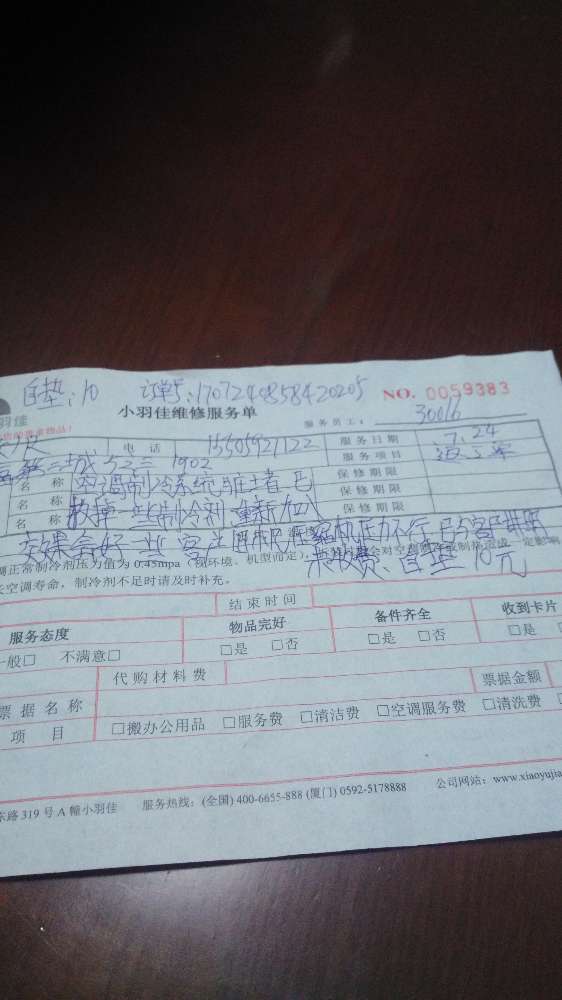 自垫:10 订单号:170724085842020S
羽佳 小羽佳维修服务单 NO. 0059383
服务员工: 30016
电话 15505921122 服务日期 7.24
二城 1902 服务项目 返工单
名称 空调制冷系统脏堵者已 保修期限
名称 放掉一些制冷剂重新加入 保修期限
名称 效果会好一些 客户 压缩机压力不行 保修期限
未收费、自垫10元
调正常制冷剂压力值为 0.45mpa(视环境、机型而定),
空调寿命,制冷剂不足时请及时补充。
结束时间
服务态度 物品完好 备件齐全 收到卡片
一般□ 不满意□ □是 □否 □是 □否 □是
代购材料费 票据金额
票据名称
项目 □搬办公用品 □服务费 □清洁费 □空调服务费 □清洗费
东路 319 号 A 幢小羽佳 服务热线:(全国) 400-6655-888 (厦门) 0592-5178888 公司网站:www.xiaoyujia